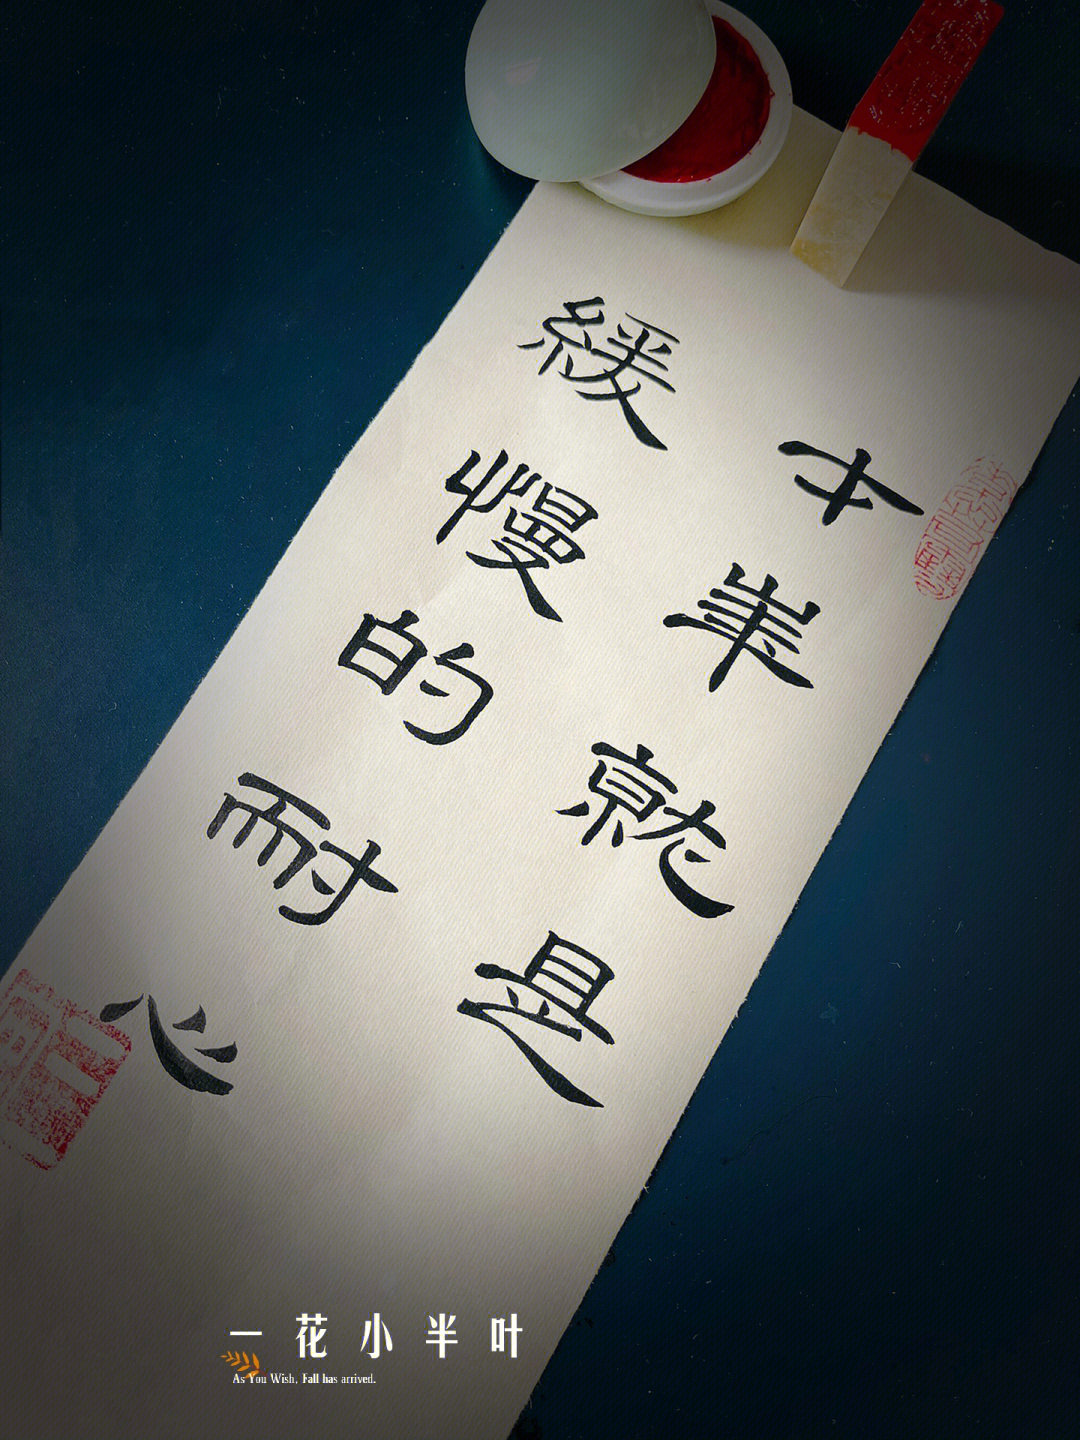 才華就是
緩慢的耐心
一花小半叶
As You Wish, Fall has arrived.